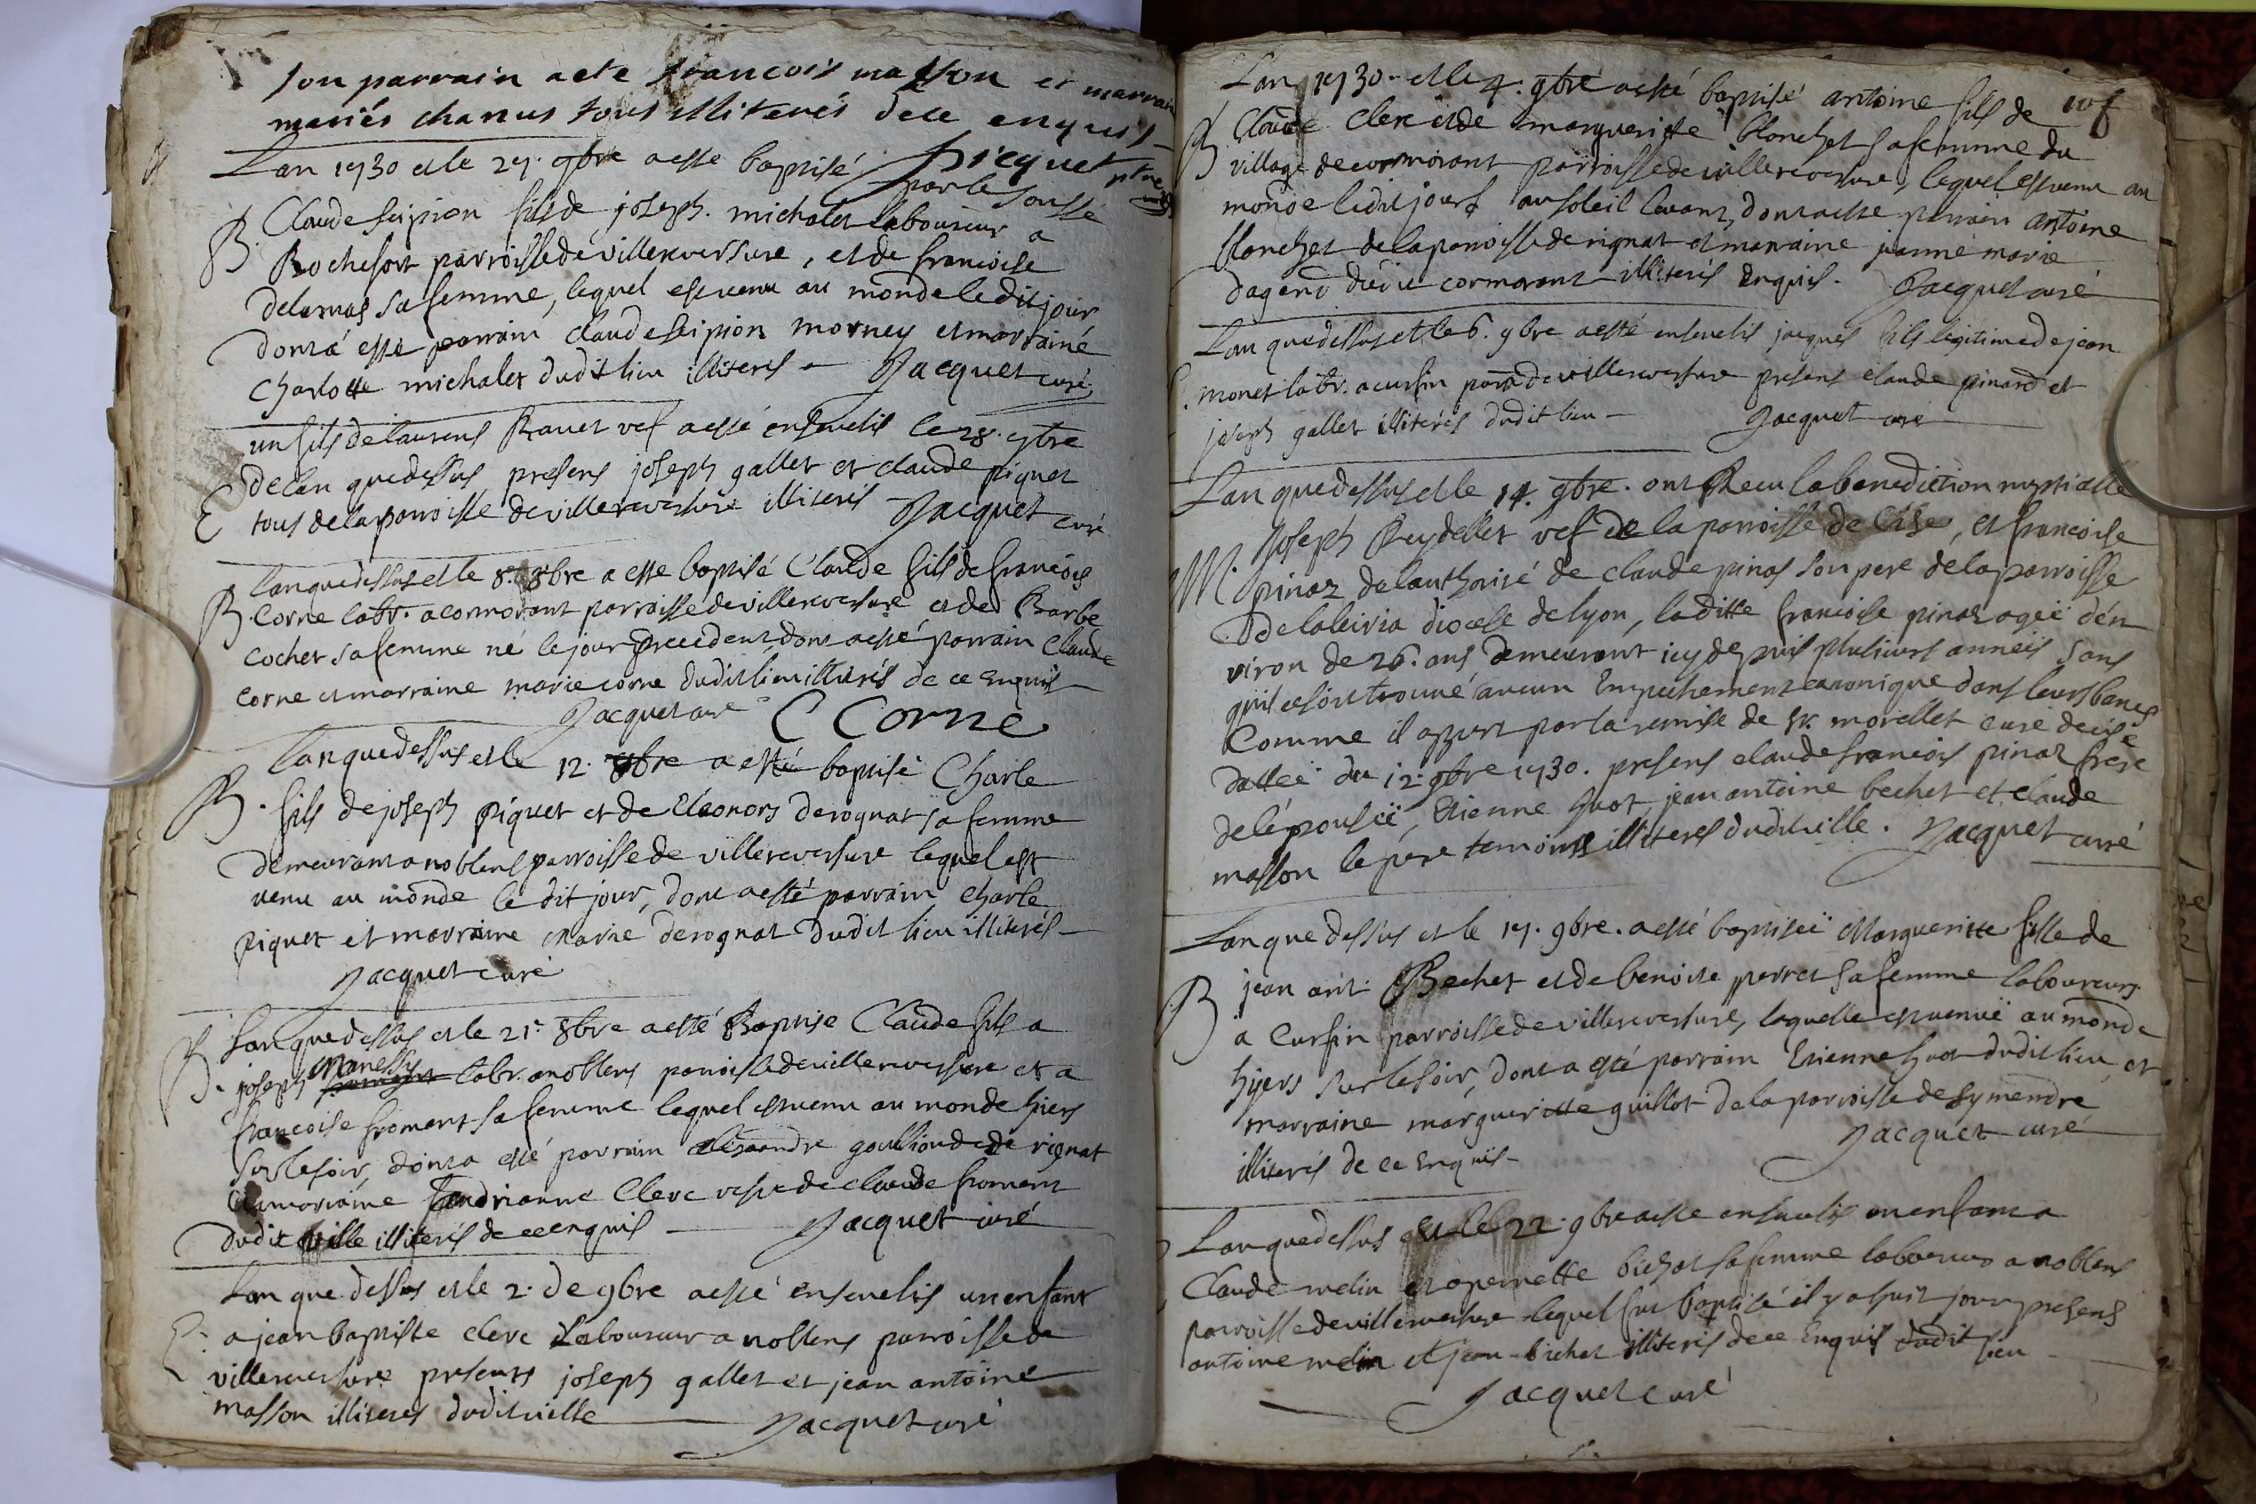 son parrain a ete francois masson et marrain
mariés chanus tous illiterés de ce enquis
picquet ptre
par le sousse
Lan 1730 et le 27. gbre a esté baptisé
B. Claude scipion fils de joseph. michalet laboureur a
Rochefort parroisse de villereversure, et de francoise
delamas sa femme, lequel est venu au monde ledit jour
dont a esté parrain claude scipion morney et marraine
Charlotte michalet dudit lieu illiterés Jacquet curé
un fils de laurens Ravet vef a esté ensevelis le 28. gbre
de lan que dessus presens joseph gallet et claude piquet
E tous de la parroisse de villereversure illiterés Jacquet curé
Lan que dessus et le 8. 8bre a esté baptisé Claude fils de francois
B. Corne labr. a cormorant parroisse de villereversure et de Barbe
cochet sa femme né le jour precedent, dont a esté parrain Claude
Corne et marraine marie corne dudit lieu illiterés de ce enquis
Jacquet curé C Corne
Lan que dessus et le 12. 8bre a esté baptisé Charle
B. fils de joseph piquet et de Eleonors derognat sa femme
demeurant a noblens parroisse de villereversure lequel est
venu au monde le dit jour, dont a esté parrain charle
piquet et marraine marie derognat dudit lieu illiterés
Jacquet curé
Lan que dessus et le 21. 8bre a esté Baptise Claude fils a
B. joseph manessy labr. a noblens parroisse de villereversure et a
francoise froment sa femme lequel est venu au monde hiers
sur le soir, dont a esté parrain alexandre goullioud de rignat
et marraine andrianne Clerc vefve de claude froment
dudit ville illiterés de ce enquis Jacquet curé
Lan que dessus et le 2. de 9bre a esté ensevelis un enfant
E. a jean baptiste clerc laboureur a noblens parroisse de
villereversure presents joseph gallet et jean antoine
masson illiteres dudit ville Jacquet curé
Lan 1730 et le 4. 9bre a esté baptisé antoine fils de
B. Claude Clerc et de marguerite blanchet sa femme du
village de cormorant parroisse de villereversure, lequel est venu au
monde ledit jour au soleil levant, dont a esté parrain antoine
blanchet de la parroisse de rignat et marraine jeanne marie
dagend dudit cormorant illiterés enquis. Jacquet curé
Lan que dessus et le 6. 9bre a esté ensevelis jacques fils legitime de jean
E. monet labr. a cursin parr. de villereversure presens claude pinard et
joseph gallet illiterés dudit lieu Jacquet cure
Lan que dessus et le 14. 9bre. ont Receu la benediction nuptialle
M. Joseph Reydellet vef de la parroisse de Cise, et francoise
pinaz de lauthorisé de claude pinas son pere de la parroisse
de laleiria diocese de lyon, laditte francoise pinaz agée den
viron de 26. ans demeurant icy depuis plusieurs années sans
quil se soit trouvé aucun Empechement canonique dans leurs bancs
Comme il appert par la remise de Sr. morellet curé de cise
dattée du 12. 9bre 1730. presens claude francois pinaz frere
de lépousée, Etienne huot jean antoine bechet et claude
masson le père temoins illiteres dudit ville. Jacquet curé
Lan que dessus et le 17. 9bre. a esté baptiseé Margueritte fille de
B jean ant. Bechet et de benoite perret sa femme laboureurs
a Cursin parroisse de villereversure, laquelle est venuë au monde
hyers sur le soir, dont a esté parrain Etienne huot dudit lieu et
marraine margueritte guillot de la parroisse de symendre
illiterés de ce Enquis Jacquet curé
Lan que dessus et le 22. 9bre a esté ensevelis un enfant a
Claude melin et a pernette bichat sa femme laboureurs a noblens
parroisse de villereversure lequel fut baptisé il y a huit jours presens
antoine melin et jean bichet illiterés de ce Enquis dudit lieu
Jacquet curé